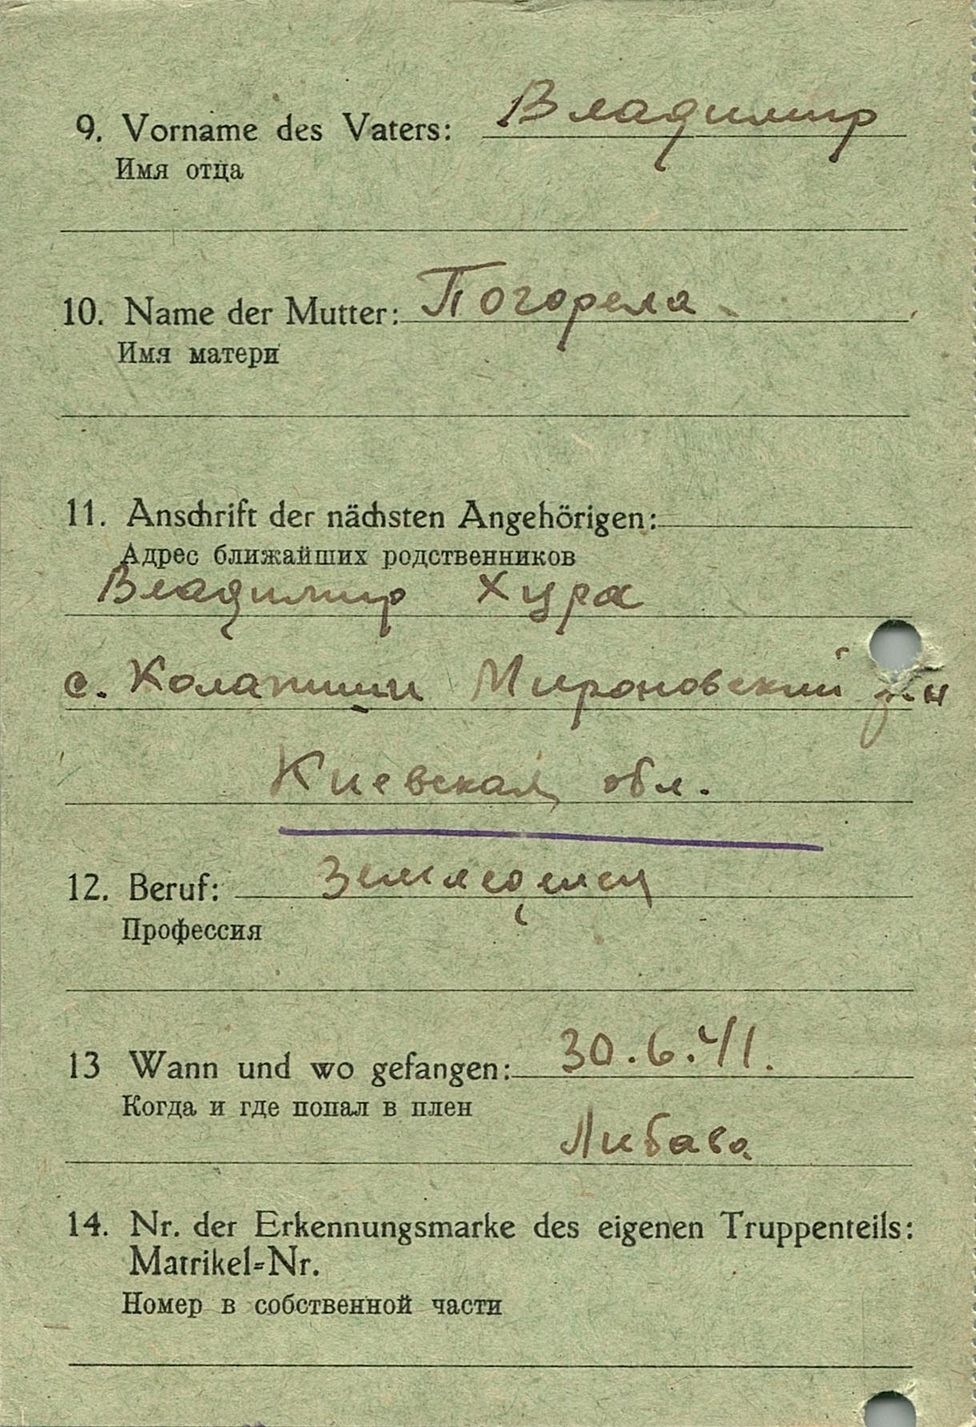 9. Vorname des Vaters: Владимир
Имя отца
10. Name der Mutter: Погорела
Имя матери
11. Anschrift der nächsten Angehörigen:
Адрес ближайших родственников
Владимир Хура
с. Мироновский р-н
Киевская обл.
12. Beruf: Земледелец
Профессия
13 Wann und wo gefangen: 30.6.41.
Когда и где попал в плен
Либава
14. Nr. der Erkennungsmarke des eigenen Truppenteils:
Matrikel=Nr.
Номер в собственной части